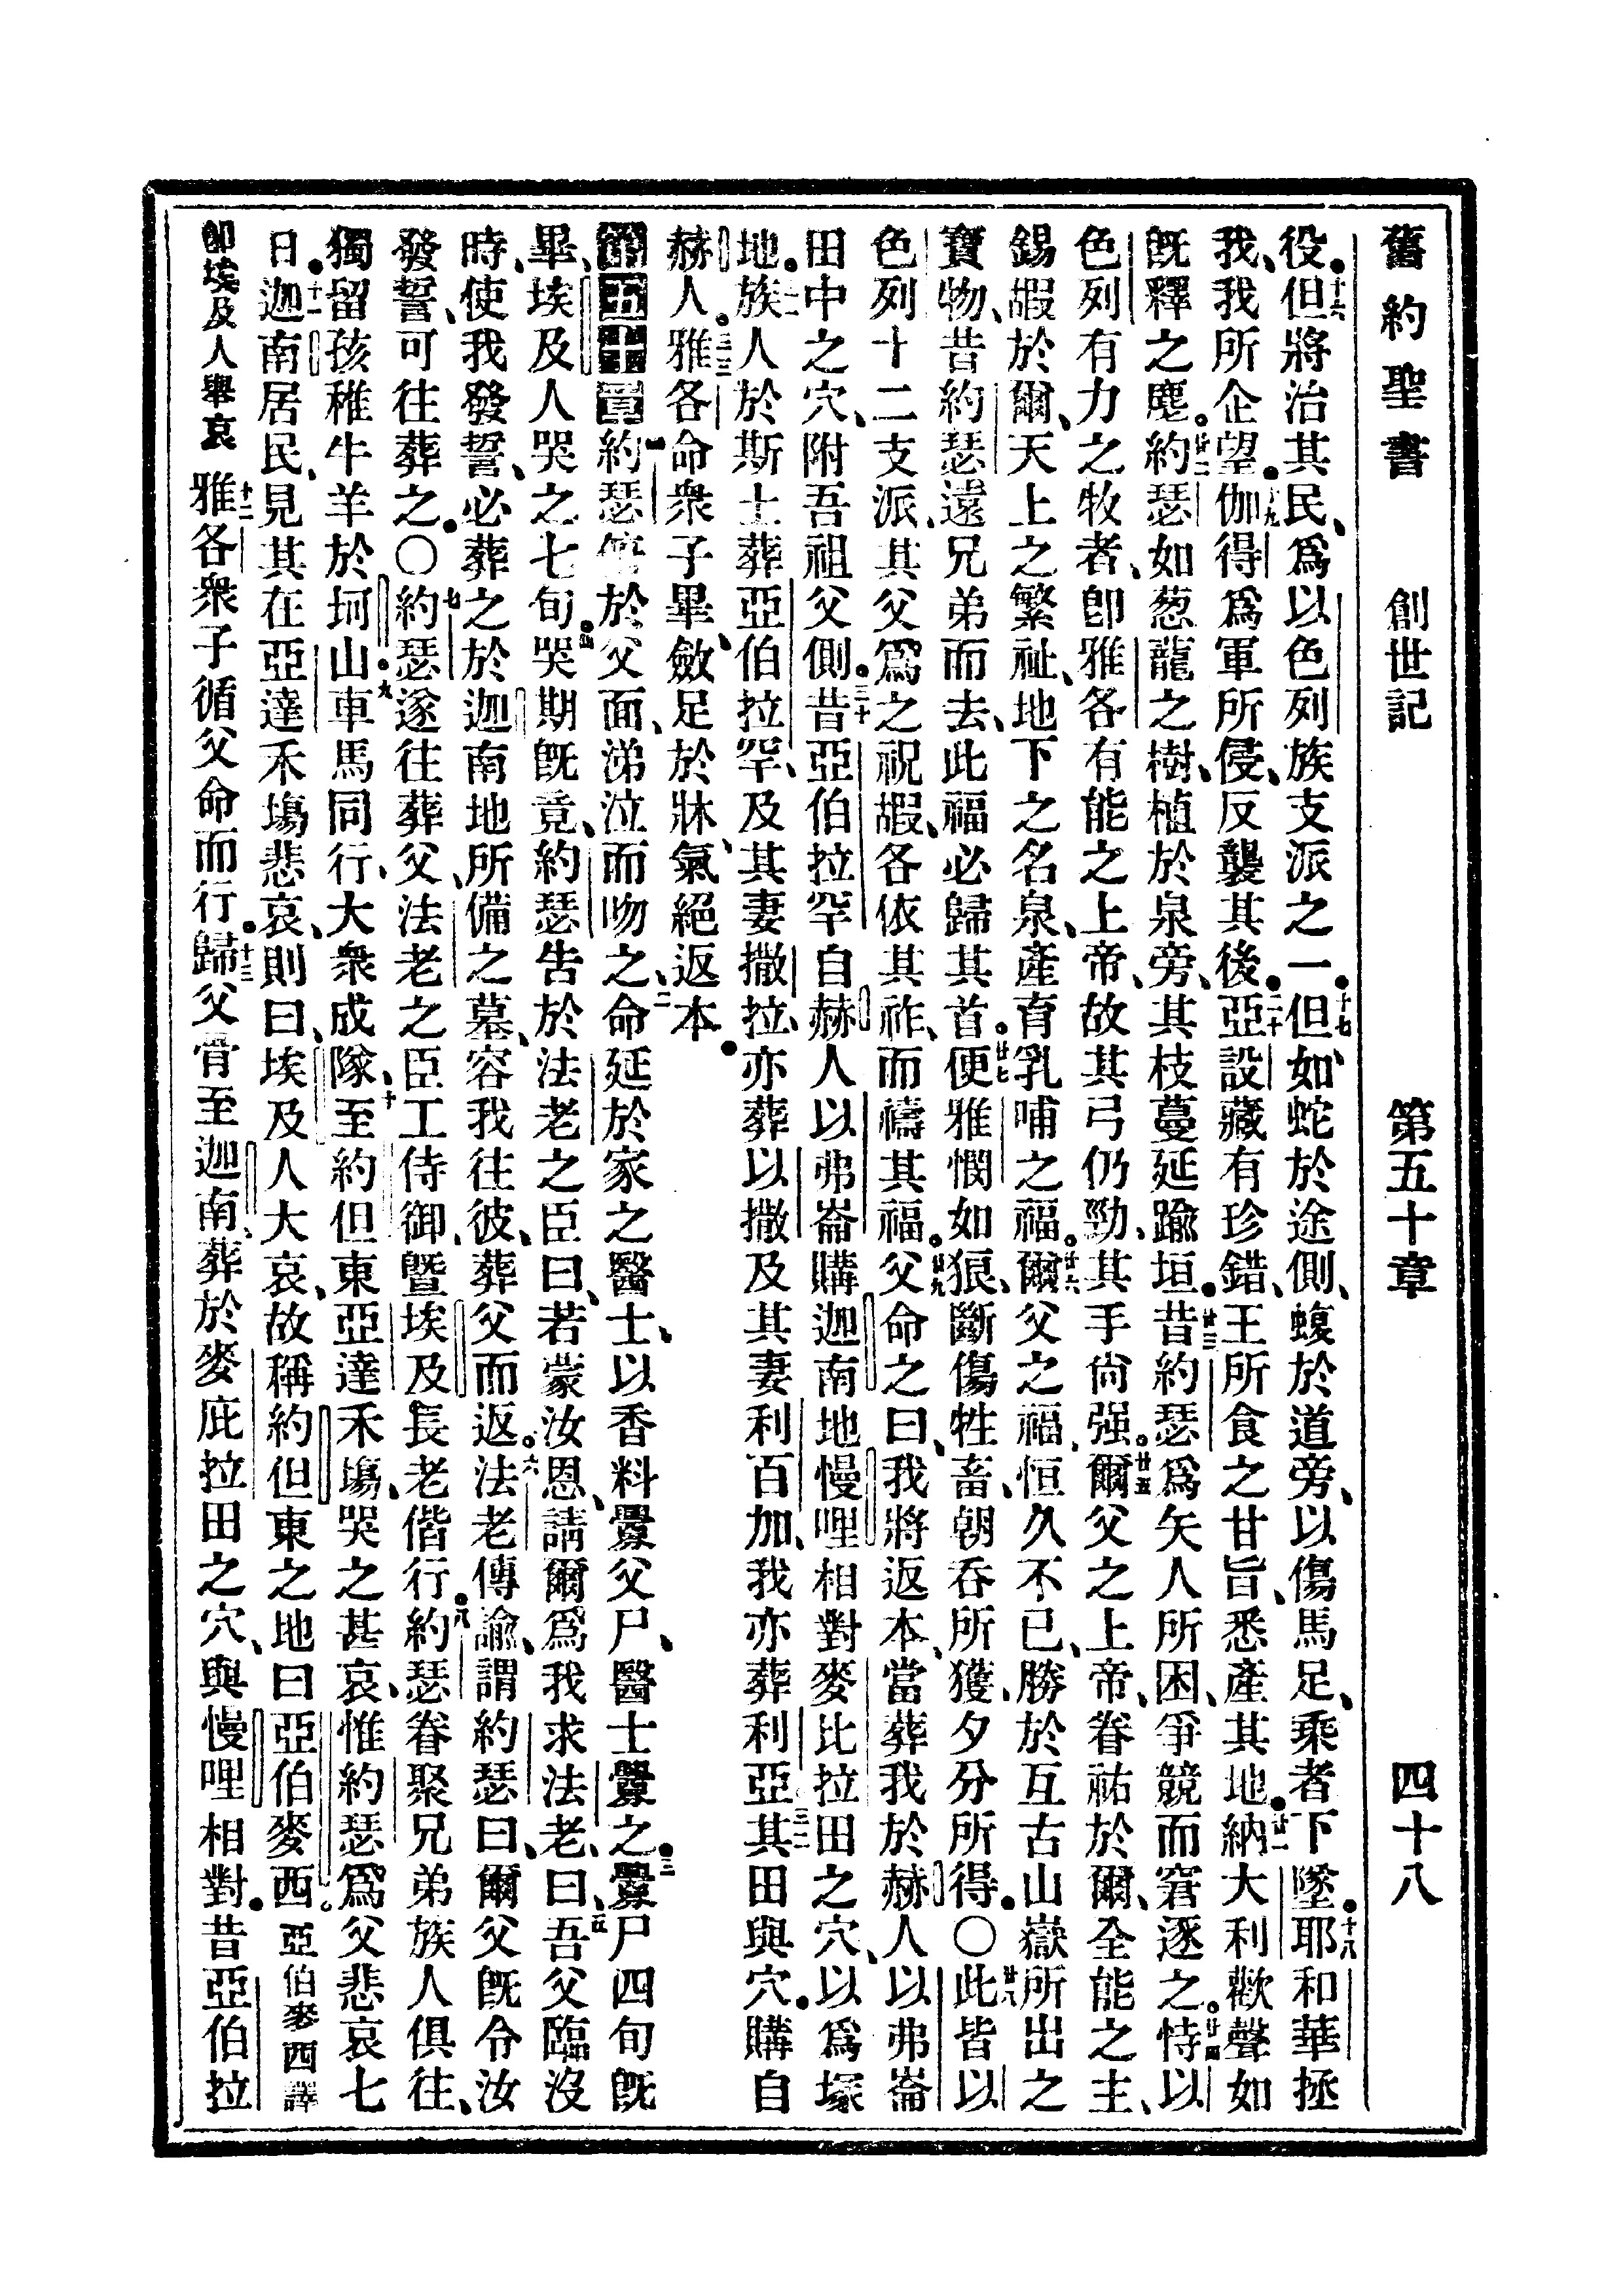 舊約聖書 創世記 第五十章 四十八
役。十六但將治其民、爲以色列族支派之一。十七但如蛇於途側、蝮於道旁、以傷馬足、乘者下墜。十八耶和華拯
我、我所企望。十九伽得爲軍所侵、反襲其後。二十亞設藏有珍錯、王所食之甘旨、悉產其地。廿一納大利歡聲如
旣釋之麀。廿二約瑟如葱蘢之樹、植於泉旁、其枝蔓延踰垣。廿三昔約瑟爲矢人所困、爭競而窘逐之。廿四恃以
色列有力之牧者、卽雅各有能之上帝、故其弓仍勁、其手尙强。廿五爾父之上帝、眷祐於爾、全能之主、
錫嘏於爾、天上之繁祉、地下之名泉、產育乳哺之福。廿六爾父之福、恒久不已、勝於互古山嶽所出之
寶物、昔約瑟遠兄弟而去、此福必歸其首。廿七便雅憫如狼、斷傷牲畜、朝吞所獲、夕分所得。〇廿八此皆以
色列十二支派、其父爲之祝嘏、各依其祚、而禱其福。廿九父命之曰、我將返本、當葬我於赫人以弗崙
田中之穴、附吾祖父側。三十昔亞伯拉罕自赫人以弗崙購迦南地慢哩相對麥比拉田之穴、以爲塚
地。三一族人於斯土葬亞伯拉罕、及其妻撒拉、亦葬以撒及其妻利百加、我亦葬利亞。三二其田與穴。購自
赫人。三三雅各命衆子畢、斂足於牀、氣絕返本。
第五十章 一約瑟俯於父面、涕泣而吻之、二命延於家之醫士、以香料釁父尸、醫士釁之。三釁尸四旬旣
畢、埃及人哭之七旬。四哭期旣竟、約瑟告於法老之臣曰、若蒙汝恩、請爾爲我求法老、曰、五吾父臨沒
時、使我發誓、必葬之於迦南地、所備之墓、容我往彼、葬父而返。六法老傳諭、謂約瑟曰、爾父旣令汝
發誓、可往葬之。〇七約瑟遂往葬父、法老之臣工侍御、曁埃及長老偕行。八約瑟眷聚兄弟族人俱往、
獨留孩稚牛羊於坷山。九車馬同行、大衆成隊、十至約但東亞達禾塲、哭之甚哀、惟約瑟爲父悲哀七
日。十一迦南居民、見其在亞達禾塲悲哀、則曰、埃及人大哀、故稱約但東之地曰亞伯麥西。亞伯麥西譯
卽埃及人舉哀 十二雅各衆子循父命而行。十三歸父骨至迦南、葬於麥庇拉田之穴、與慢哩相對。昔亞伯拉